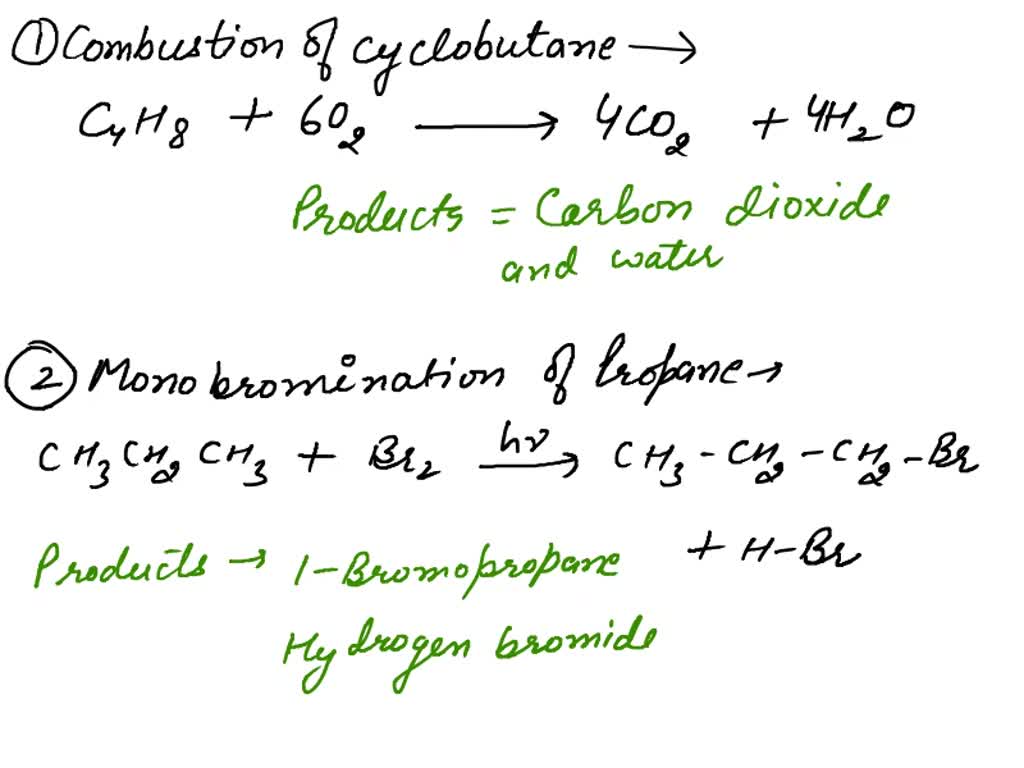 ① Combustion of cyclobutane →
C₄H₈ + 6O₂ → 4CO₂ + 4H₂O
Products = Carbon dioxide
and water
② Monobromination of Propane →
CH₃CH₂CH₃ + Br₂ hν→ CH₃-CH₂-CH₂-Br
+ H-Br
Products → 1-Bromopropane
Hydrogen bromide